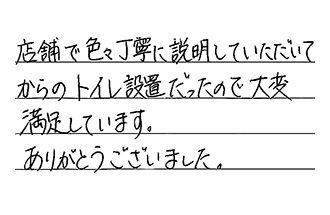 店舗で色々丁寧に説明していただいて
からのトイレ設置だったので大変
満足しています。
ありがとうございました。